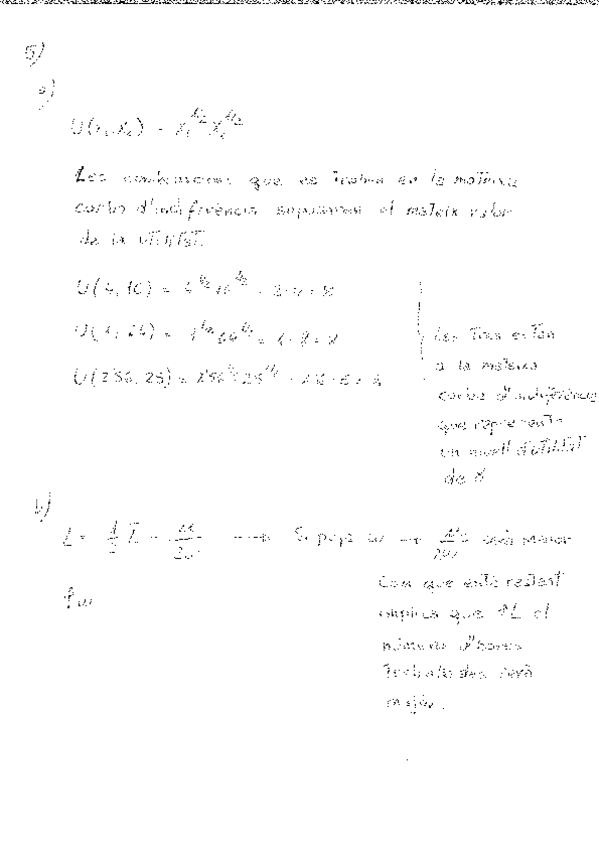 5)
a)
U(x₁, x₂) = x₁^1/2 x₂^1/2
Les combinacions que es troben en la mateixa
corba d'indiferència suposaran el mateix valor
de la utilitat.
U(4, 16) = 4^1/2 16^1/2 = 2·4 = 8
U(1, 64) = 1^1/2 64^1/2 = 1·8 = 8
U(2'56, 25) = 2'56^1/2 25^1/2 = 1'6·5 = 8
Les tres estan
a la mateixa
corba d'indiferència
que representa
un nivell d'utilitat
de 8
b)
L = 1/2 L̄ - M/2w → Si puja w → M/2w serà menor
↑w
Com que està restant
implica que ↑L el
número d'hores
treballades serà
major.